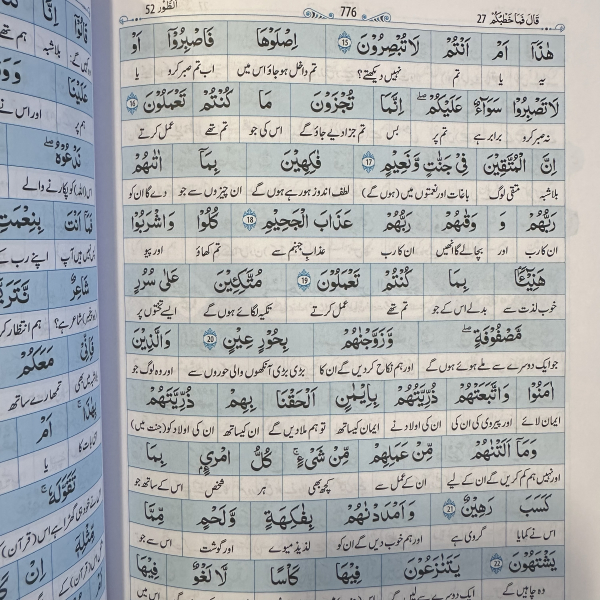 قَالَ فَمَا خَطْبُكُمْ 27
776
اَلطُّوْر 52
هٰذَآ اَمْ اَنْتُمْ لَا تُبْصِرُوْنَ 15 اِصْلَوْهَا فَاصْبِرُوْٓا اَوْ
یہ یا تم نہیں دیکھتے؟ تم داخل ہو جاؤ اس میں اب تم صبر کرو یا
لَا تَصْبِرُوْا سَوَآءٌ عَلَيْكُمْ اِنَّمَا تُجْزَوْنَ مَا كُنْتُمْ تَعْمَلُوْنَ 16
نہ صبر کرو برابر ہے تم پر بس تم جزا دیے جاؤ گے اس کی جو تم تھے عمل کرتے
اِنَّ الْمُتَّقِيْنَ فِيْ جَنّٰتٍ وَّنَعِيْمٍ 17 فٰكِهِيْنَ بِمَآ اٰتٰىهُمْ
بلاشبہ متقی لوگ باغات اور نعمتوں میں (ہوں گے) لطف اندوز ہو رہے ہوں گے ان چیزوں سے جو دے گا ان کو
رَبُّهُمْ وَ وَقٰىهُمْ رَبُّهُمْ عَذَابَ الْجَحِيْمِ 18 كُلُوْا وَاشْرَبُوْا
ان کا رب اور بچالے گا انھیں ان کا رب عذاب جہنم سے تم کھاؤ اور پیو
هَنِيْٓـًٔۢا بِمَا كُنْتُمْ تَعْمَلُوْنَ 19 مُتَّكِـِٕيْنَ عَلٰى سُرُرٍ
خوب لذت سے بدلے اس کے جو تم تھے عمل کرتے تکیہ لگائے ہوں گے ایسے تختوں پر
مَّصْفُوْفَةٍ وَزَوَّجْنٰهُمْ بِحُوْرٍ عِيْنٍ 20 وَالَّذِيْنَ
جو ایک دوسرے سے ملے ہوئے ہوں گے اور ہم نکاح کر دیں گے ان کا بڑی بڑی آنکھوں والی حوروں سے اور وہ لوگ جو
اٰمَنُوْا وَاتَّبَعَتْهُمْ ذُرِّيَّتُهُمْ بِاِيْمَانٍ اَلْحَقْنَا بِهِمْ ذُرِّيَّتَهُمْ
ایمان لائے اور پیروی کی ان کی ان کی اولاد نے ایمان کیساتھ تو ہم ملا دیں گے ان کیساتھ ان کی اولاد کو (جنت میں)
وَمَآ اَلَتْنٰهُمْ مِّنْ عَمَلِهِمْ مِّنْ شَيْءٍ كُلُّ امْرِئٍۭ بِمَا
اور نہیں ہم کم کریں گے ان کے لیے ان کے عمل سے کچھ بھی ہر شخص اس کے ساتھ جو
كَسَبَ رَهِيْنٌ 21 وَاَمْدَدْنٰهُمْ بِفَاكِهَةٍ وَّلَحْمٍ مِّمَّا
اس نے کمایا گروی ہے اور ہم خوب دیں گے ان کو لذیذ میوے اور گوشت اس سے جو
يَشْتَهُوْنَ 22 يَتَنَازَعُوْنَ فِيْهَا كَاْسًا لَّا لَغْوٌ فِيْهَا
وہ چاہیں گے
قَالُوْٓا اِنَّا
بلاشبہ ہم تھے
عَلَيْنَا
ہم پر اور اس نے
نَدْعُوْهُ
اس (اللہ) کو پکارنے والے
فَمَآ اَنْتَ بِنِعْمَتِ
اپنے رب کے
شَاعِرٌ
ہم انتظار کر
مَعَكُمْ
تمھارے ساتھ
بِهٰذَآ اَمْ
یا
تَقَوَّلَهٗ
مِّثْلِهٖٓ اِنْ